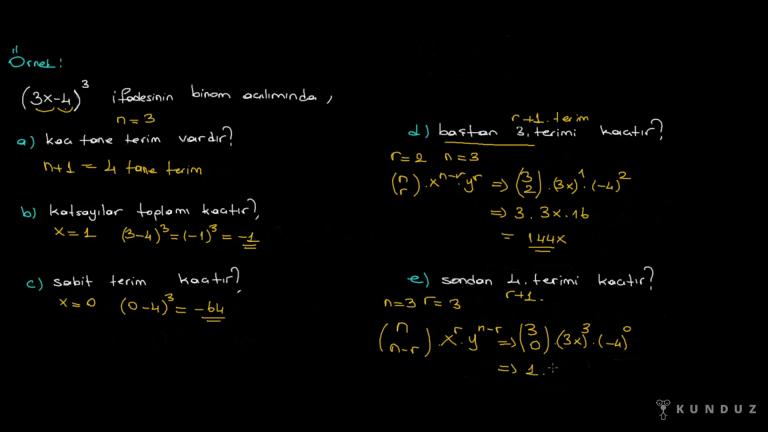 Örnek:
(3x-4)³ ifadesinin binom açılımında,
n=3
a) kaç tane terim vardır?
n+1 = 4 tane terim
b) katsayılar toplamı kaçtır?
x=1 (3-4)³ = (-1)³ = -1
c) sabit terim kaçtır?
x=0 (0-4)³ = -64
r+1. terim
d) baştan 3. terimi kaçtır?
r=2 n=3
(n r) . xⁿ⁻ʳ . yʳ => (3 2) . (3x)¹ . (-4)²
=> 3 . 3x . 16
= 144x
e) sondan 4. terimi kaçtır?
n=3 r=3 r+1.
(n n-r) . xʳ . yⁿ⁻ʳ => (3 0) . (3x)³ . (-4)⁰
=> 1 .
KUNDUZ